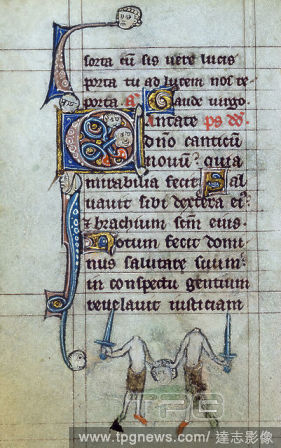 sorta cū sis vere lucis
porta tu ad lucem nos re-
porta. a Gaude virgo.
Cantate ps dd.
dño canticū
novū: quia
mirabilia fecit. Sal
vavit sibi dextera ei⁹
& brachium scm̄ eius.
Notum fecit domi
nus salutare suum:
in conspectu gentium
revelavit iusticiam
TPG
www.tpgnews.com / 達志影像